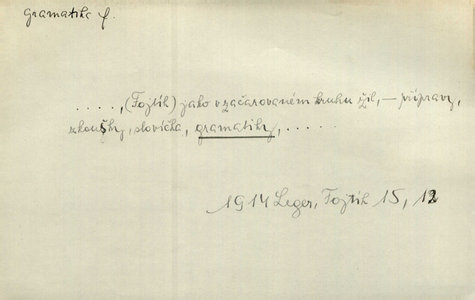 Gramatika f.
. . . . , (Fojtík) jako v začarovaném kruhu žil, — přípravy,
zkoušky, slovíčka, gramatiky, . . . . .
1914 Leger, Fojtík 15, 12